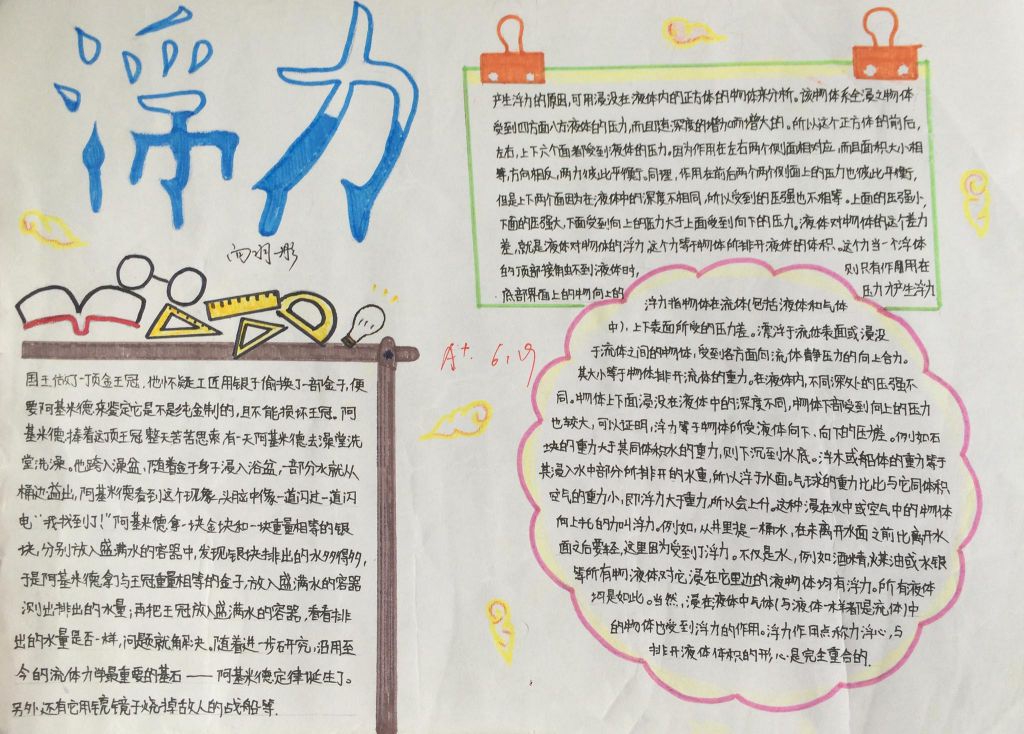 浮力
A+. 6.19
产生浮力的原因,可用浸没在液体内的正方体的物体来分析。该物体系全浸之物体
受到四方面八方液体的压力,而且随深度的增加而增大的。所以这个正方体的前后,
左右,上下六个面都受到液体的压力。因为作用在左右两个侧面相对应,而且面积大小相
等,方向相反,两力彼此平衡。同理,作用在前后两个两个侧面上的压力也彼此平衡,
但是上下两个面因为在液体中的深度不相同,所以受到的压强也不相等。上面的压强小,
下面的压强大,下面受到向上的压力大于上面受到向下的压力。液体对物体的这个差力
差,就是液体对物体的浮力这个力等于物体所排开液体的体积。这个力当一个浮体
的顶部接触不到液体时,则只有作用用在
底部界面上的物向上的压力才产生浮力
国王做了一顶金王冠,他怀疑工匠用银子偷换了一部金子,便
要阿基米德来鉴定它是不是纯金制的,且不能损坏王冠。阿
基米德捧着这顶王冠整天苦苦思索,有一天阿基米德去澡堂洗
堂洗澡。他跨入澡盆,随着金子身子浸入浴盆,一部分水就从
桶边溢出,阿基米德看到这个现象,头脑中像一道闪过一道闪
电“我找到了!”阿基米德拿一块金块和一块重量相等的银
块,分别放入盛满水的容器中,发现银块排出的水多得多,
于是阿基米德拿了与王冠重量相等的金子,放入盛满水的容器
测出排出的水量,再把王冠放入盛满水的容器,看看排
出的水量是否一样,问题就解决。随着进一步研究,沿用至
今的流体力学最重要的基石——阿基米德定律诞生了。
另外还有它用镜镜子烧掉敌人的战船等.
浮力指物体在流体(包括液体和气体
中),上下表面所受的压力差。漂浮于流体表面或浸没
于流体之间的物体,受到各方面向流体静压力的向上合力。
其大小等于物体排开流体的重力。在液体内,不同深处的压强不
同。物体上下面浸没在液体中的深度不同,物体下部受到向上的压力
也较大,可以证明,浮力等于物体所受液体向下、向下的压力差。例如石
块的重力大于其同体积水的重力,则下沉到水底。浮木或船体的重力等于
其浸入水中部分所排开的水重,所以浮于水面。气球的重力比比与它同体积
空气的重力小,即浮力大于重力,所以会上升。这种浸在水中或空气中的物体
向上托的力叫浮力。例如,从井里提一桶水,在未离开水面之前比离开水
面之后要轻,这里因为受到了浮力。不仅是水,例如酒精,煤油或水银
等所有物液体对它浸在它里边的液物体均有浮力。所有液体
均是如此。当然,浸在液体中气体(与液体一样都是流体)中
的物体也受到浮力的作用。浮力作用点称力浮心,与
排开液体体积的形心是完全重合的.